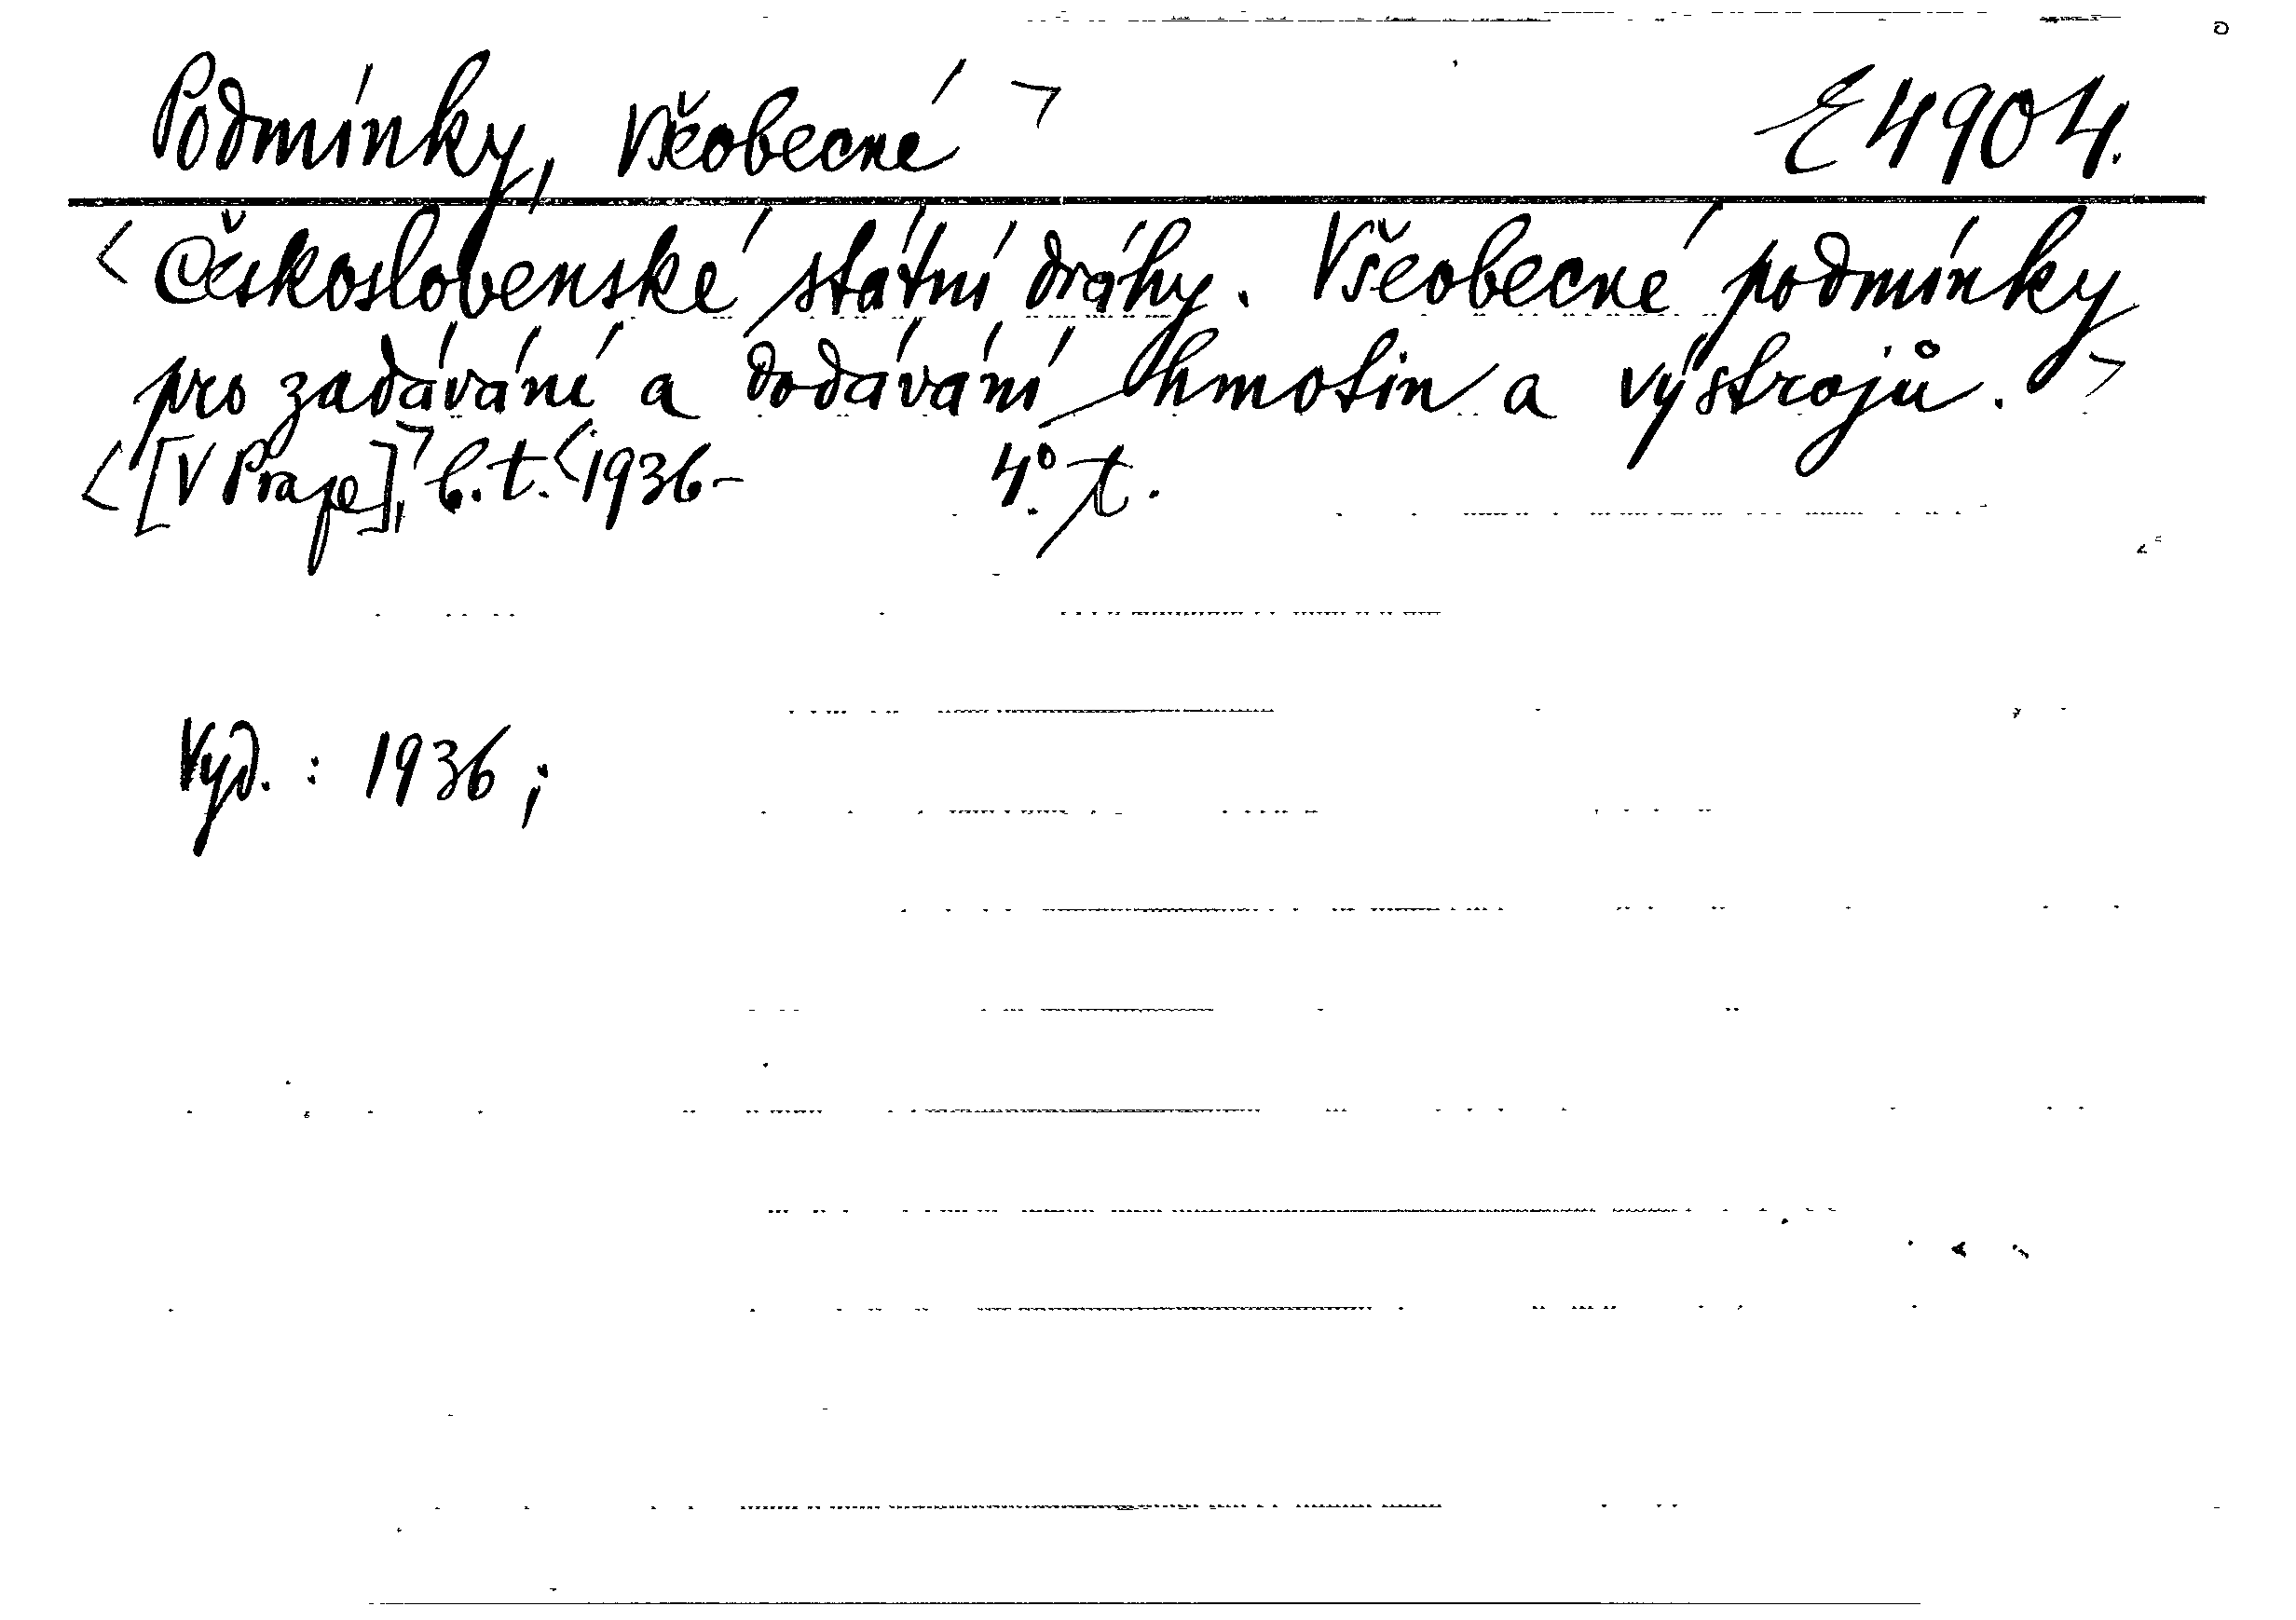 Podmínky, Všeobecné > E 4904.
< Československé státní dráhy. Všeobecné podmínky
pro zadávání a dodávání hmotin a výstrojů. >
< [V Praze], > b. t. < 1936- 4°. t.
Vyd. : 1936 ;